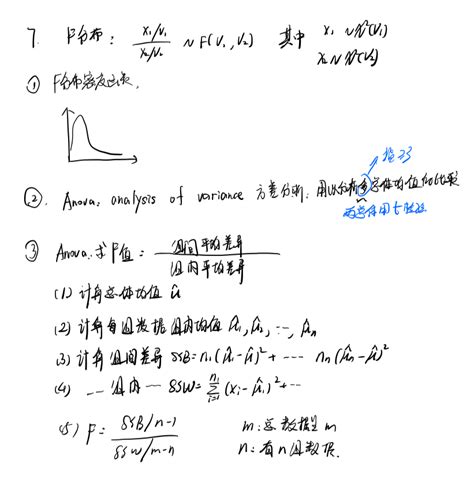 7. F分布: X₁/V₁ / X₂/V₂ ~ F(V₁, V₂) 其中 X₁ ~ X²(V₁)
X₂ ~ X²(V₂)
① F分布密度函数.
≥3
② Anova: analysis of variance 方差分析. 用以分析多总体均值的比较
两总体用t检验
③ Anova 求F值 = 组间平均差异 / 组内平均差异
(1) 计算总体均值 û
(2) 计算每组数据组内均值 û₁, û₂, ..., ûn
(3) 计算组间差异 SSB = n₁(û₁-û)² + ---- nn(ûn-û)²
(4) --- 组内 --- SSW = Σ (xᵢ-û₁)² + ...
(5) F = SSB/n-1 / SSW/m-n
m: 总数据量 m
n: 有 n 组数据.